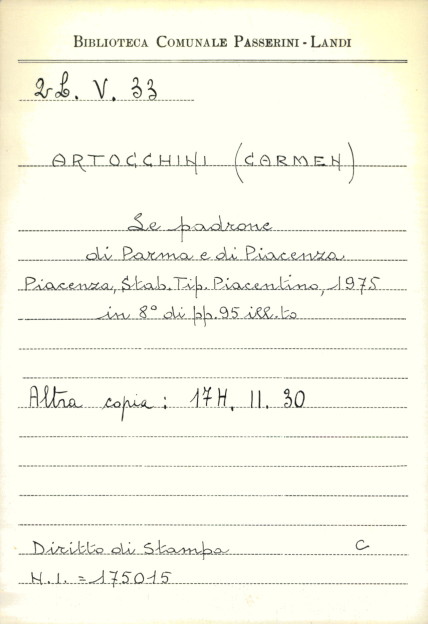 BIBLIOTECA COMUNALE PASSERINI - LANDI
2L. V. 33
ARTOCCHINI (CARMEN)
Le padrone
di Parma e di Piacenza
Piacenza, Stab. Tip. Piacentino, 1975
in 8° di pp. 95 ill.to
Altra copia : 17H. II. 30
Diritto di Stampa C
N.I. = 175015